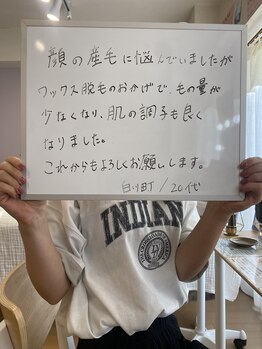 顔の産毛に悩んでいましたが
ワックス脱毛のおかげで、毛の量が
少なくなり、肌の調子も良く
なりました。
これからもよろしくお願いします。
/20代
INDIAN